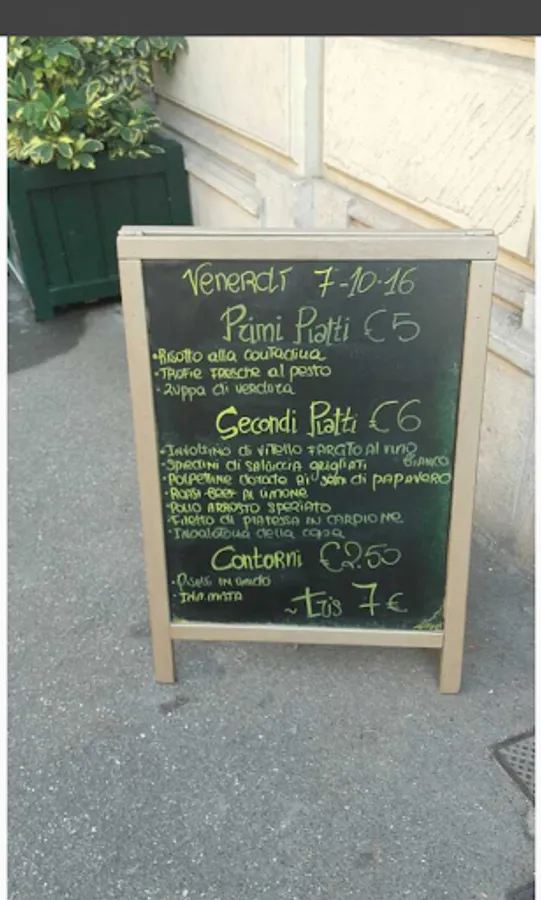 Venerdì 7-10-16
Primi Piatti €5
·Risotto alla contadina
·Trofie fresche al pesto
·Zuppa di verdura
Secondi Piatti €6
·Involtino di vitello farcito al vino
bianco
·Spiedini di salsiccia grigliati
·Polpettine dorate ai semi di papavero
·Roast-beef al limone
·Pollo arrosto speziato
·Filetto di platessa in carpione
·Insalatona della casa
Contorni €2.50
·Piselli in umido
·Ins. mista
~ tris 7€